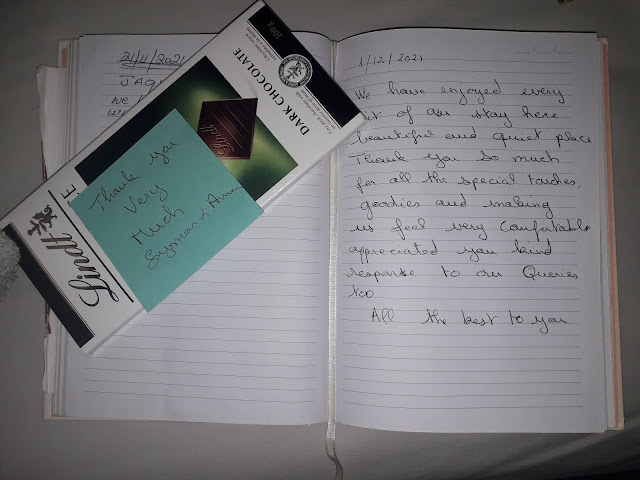 21/11/2021
We
Lindt
DARK CHOCOLATE
100g
Lindt
Thank you
Very
Much
1/12/2021
We have enjoyed every
of our stay here
beautiful and quiet place
Thank you so much
for all the special touches,
goodies and making
us feel very comfortable
appreciated you kind
response to our Queries
too
All the best to you